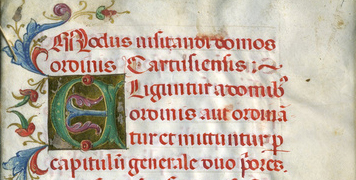 Modus uisitandi domos
ordinis Cartusiensis
Eliguntur a domib9
ordinis aut ordinā
tur et mittuntur p
capitulū generale duo pores.